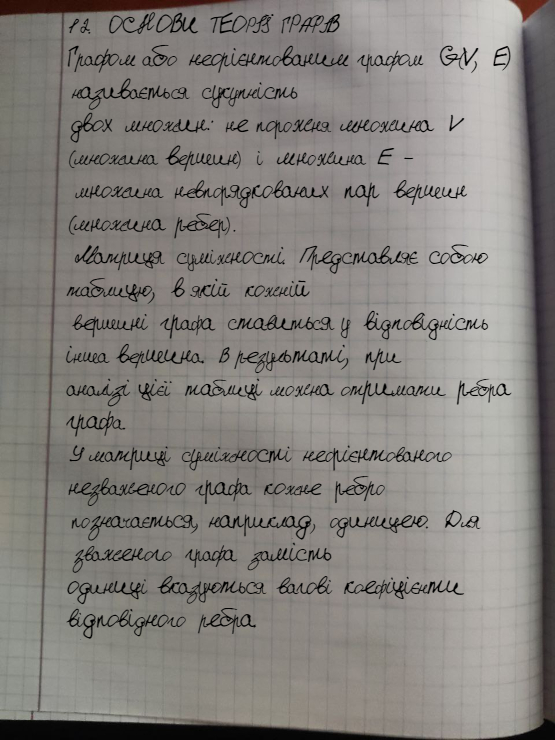 12. ОСНОВИ ТЕОРІЇ ГРАФІВ
Графом або неорієнтованим графом G(V, E)
називається сукупність
двох множин: не порожня множина V
(множина вершин) і множина E –
множина невпорядкованих пар вершин
(множина ребер).
Матриця суміжності. Представляє собою
таблицю, в якій кожній
вершині графа ставиться у відповідність
інша вершина. В результаті, при
аналізі цієї таблиці можна отримати ребра
графа
У матриці суміжності неорієнтованого
незваженого графа кожне ребро
позначається, наприклад, одиницею. Для
зваженого графа замість
одиниці вказуються вагові коефіцієнти
відповідного ребра.